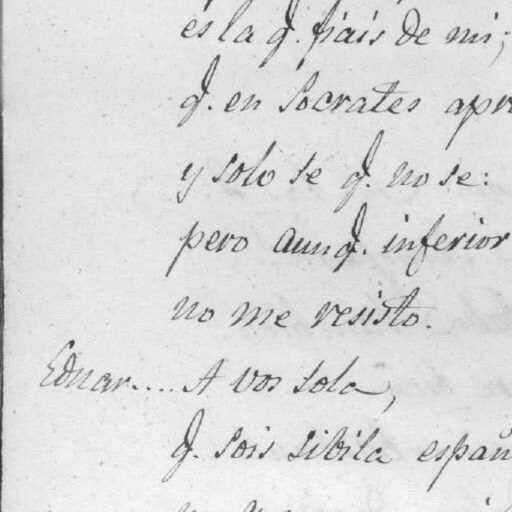 es la q. fiais de mi;
q. en Socrates apre
y solo se q. no se:
pero aunq. inferior
no me resisto.
Eduar.... A vos sola,
q. sois sibila españ